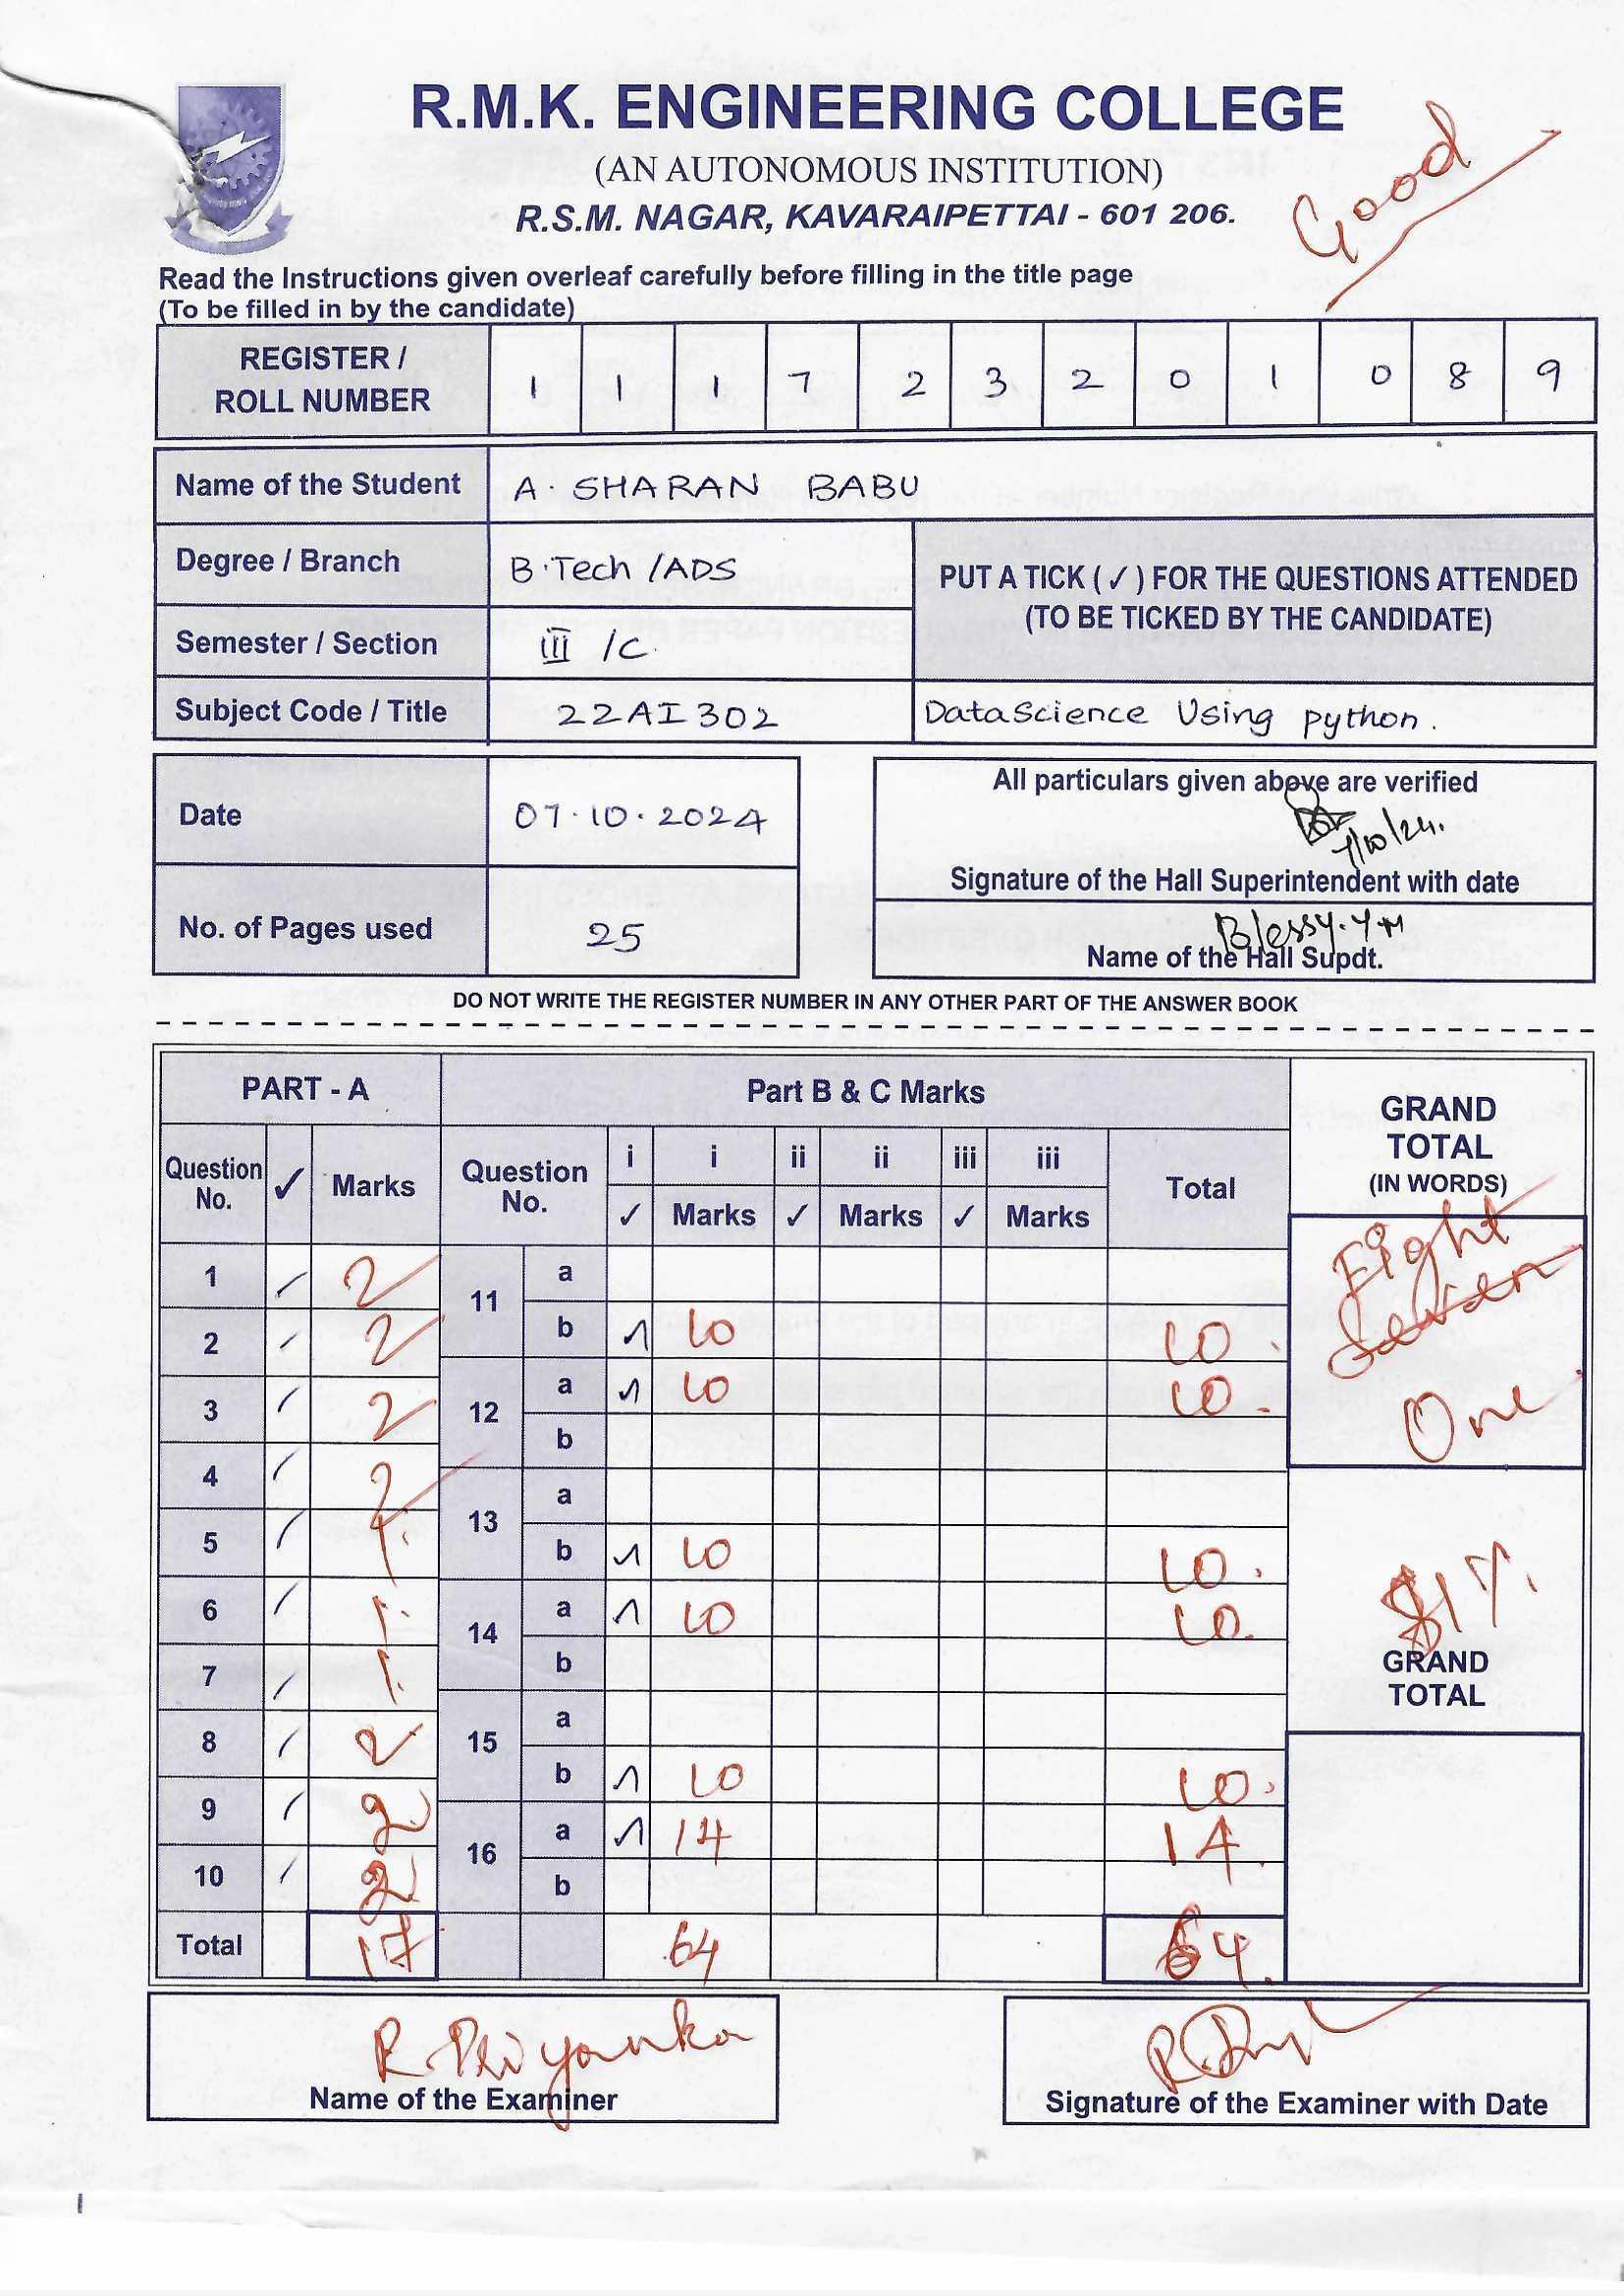 R.M.K. ENGINEERING COLLEGE
(AN AUTONOMOUS INSTITUTION)
R.S.M. NAGAR, KAVARAIPETTAI - 601 206.
Good
Read the Instructions given overleaf carefully before filling in the title page
(To be filled in by the candidate)
REGISTER / ROLL NUMBER 1 1 1 7 2 3 2 0 1 0 8 9
Name of the Student A. SHARAN BABU
Degree / Branch B.Tech /ADS
PUT A TICK (✓) FOR THE QUESTIONS ATTENDED
(TO BE TICKED BY THE CANDIDATE)
Semester / Section III /C.
Subject Code / Title 22AI302 DataScience Using python.
Date 07.10.2024
All particulars given above are verified
7/10/24.
Signature of the Hall Superintendent with date
No. of Pages used 25
Blessy.
Name of the Hall Supdt.
DO NOT WRITE THE REGISTER NUMBER IN ANY OTHER PART OF THE ANSWER BOOK
PART - A Part B & C Marks GRAND TOTAL (IN WORDS)
Question No. ✓ Marks Question No. i i ii ii iii iii Total
✓ Marks ✓ Marks ✓ Marks
1 ✓ 2 11 a
2 ✓ 2 b ✓ 10 10.
3 ✓ 2 12 a ✓ 10 10.
b
4 ✓ 2 13 a
5 ✓ 1. b ✓ 10 10.
6 ✓ 1. 14 a ✓ 10 10.
7 ✓ 1. b
8 ✓ 2 15 a
b ✓ 10 10.
9 ✓ 2 16 a ✓ 14 14.
10 ✓ 2 b
Total 17 64 64.
Eight
One
81%.
GRAND TOTAL
R. Priyanka
Name of the Examiner
Signature of the Examiner with Date